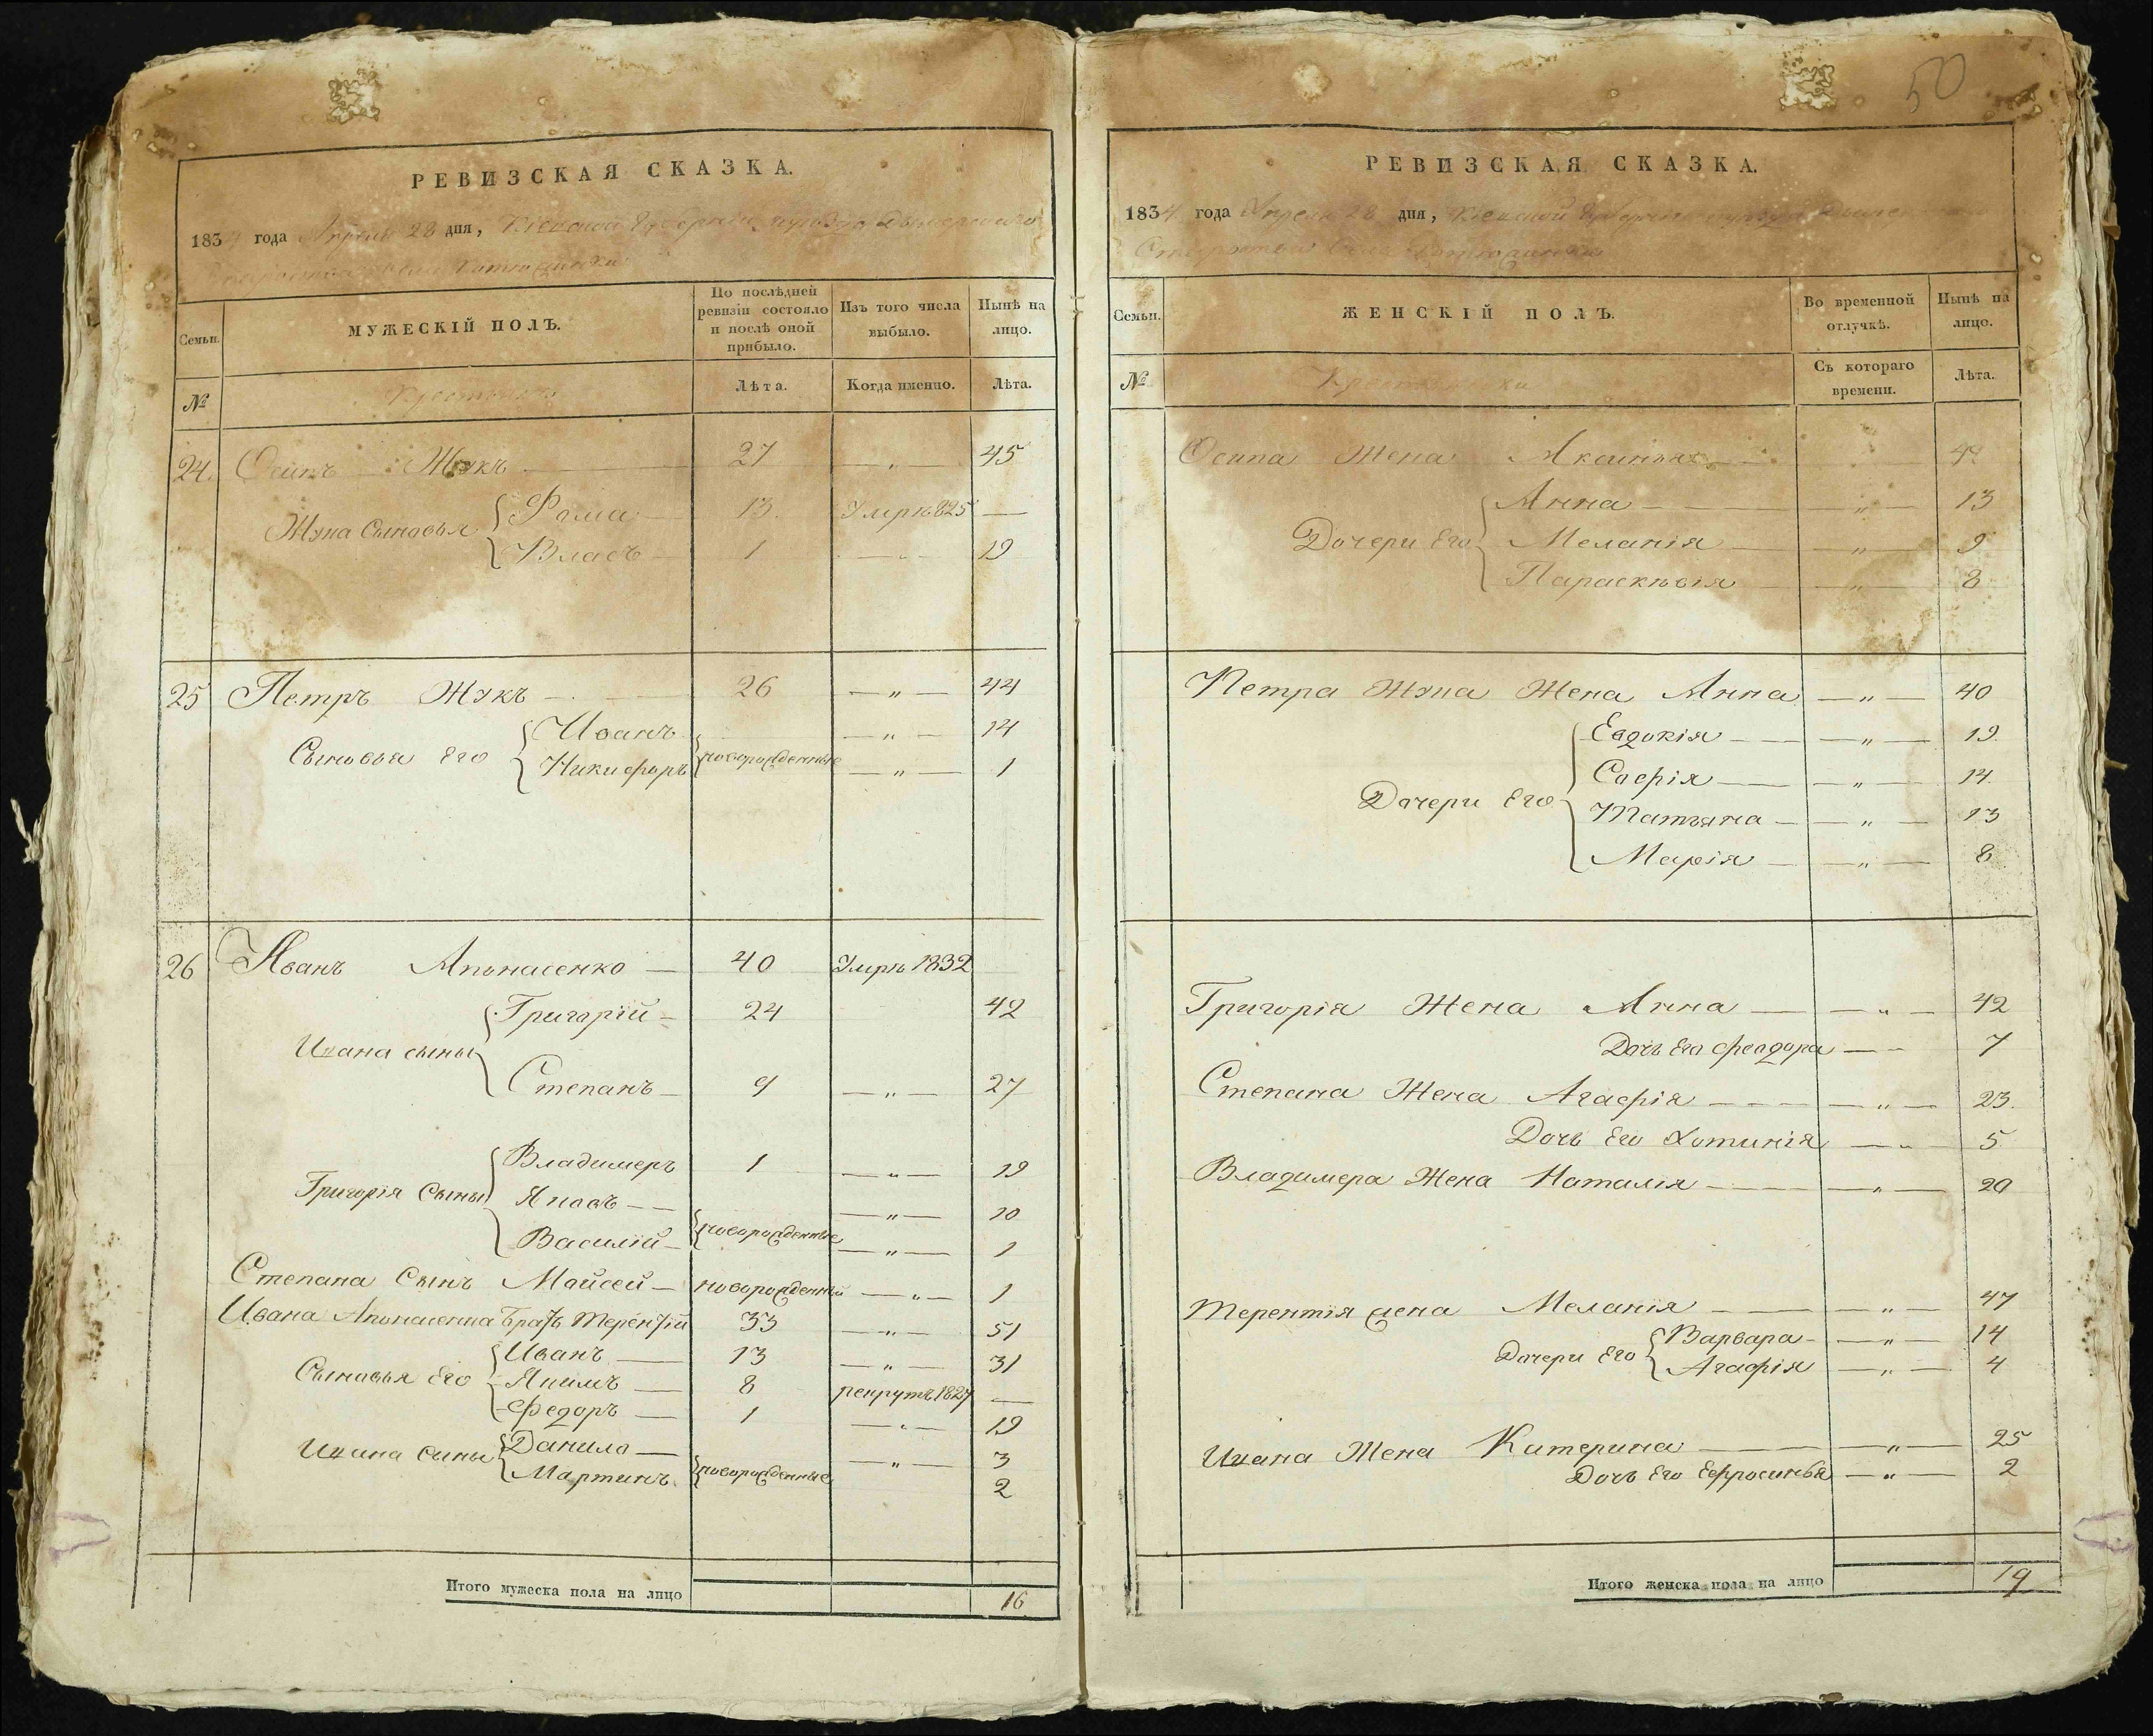 РЕВИЗСКАЯ СКАЗКА.
183 года Апреля 28 дня, Кіевской Губерніи
Семьи.
МУЖЕСКІЙ ПОЛЪ.
По послѣдней ревизіи состояло и послѣ оной прибыло.
Изъ того числа выбыло.
Нынѣ на лицо.
№
Лѣта.
Когда именно.
Лѣта.
24. Осипъ Жукъ 27 — " — 45
Жука Сыновья { Фома 13. Умръ 825 —
Власъ 1 — " — 19
25 Петръ Жукъ 26 — " — 44
Сыновья Его { Иванъ { новорожденные — " — 14
Никифоръ — " — 1
26 Иванъ Апонасенко 40 Умръ 1832
Ивана сыны { Григорій 24 42
Степанъ 9 — " — 27
Григорія Сыны { Владимеръ 1 — " — 19
— " — 10
Василій { новорожденные — " — 1
Степана Сынъ Мойсей новорожденный — " — 1
Ивана Апонасенка Братъ Терентій 33 — " — 51
Сыновья Его { Иванъ 13 — " — 31
Якимъ 8 рекрутъ 1827 —
Федоръ 1 — " — 19
Ивана Сыны { Данило { новорожденные — " — 3
Мартинъ 2
Итого мужеска пола на лицо 16
50
РЕВИЗСКАЯ СКАЗКА.
1834 года Апреля 28 дня, Кіевской Губерніи
Семьи.
ЖЕНСКІЙ ПОЛЪ.
Во временной отлучкѣ.
Нынѣ на лицо.
№
Съ котораго времени.
Лѣта.
Осипа Жена Аксинья
Дочери Его { Анна — " — 13
Меланія — " — 9
Параскѣвія — " — 8
Петра Жука Жена Анна — " — 40
Дочери Его { Евдокія — " — 19
Софія — " — 14
Татьяна — " — 13
Марія — " — 8
Григорія Жена Анна — " — 42
Дочь Его Феодора — — 7
Степана Жена Агафія — " — 23.
Дочь Его Хотинія — " — 5
Владимера Жена Наталія — " — 20
Терентія жена Меланія — " — 47
Дочери Его { Варвара — " — 14
Агафія — " — 4
Ивана Жена Катерина — " — 25
Дочь Его Ефросинья — " — 2
Итого женска пола на лицо 19